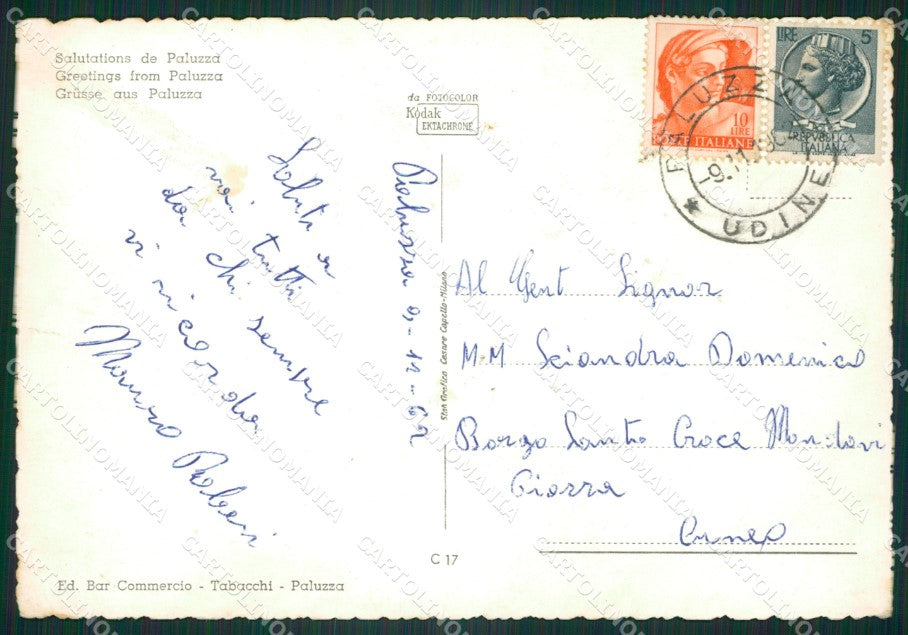 Salutations de Paluzza
Greetings from Paluzza
Grüsse aus Paluzza
da FOTOCOLOR
Kodak
EKTACHROME
10
LIRE
POSTE ITALIANE
LIRE 5
REPVBBLICA
ITALIANA
PALUZZA
UDINE
Saluti a
voi tutti
da chi sempre
vi ricorda
Mauro
Paluzza 9-11-62
Stab. Grafico Cesare Capello - Milano
Al Gent Signor
M.M Sciandra Domenico
Borgo Santa Croce Mondovi
Piazza
Cuneo
C 17
Ed. Bar Commercio - Tabacchi - Paluzza
CARTOLINOMANIA